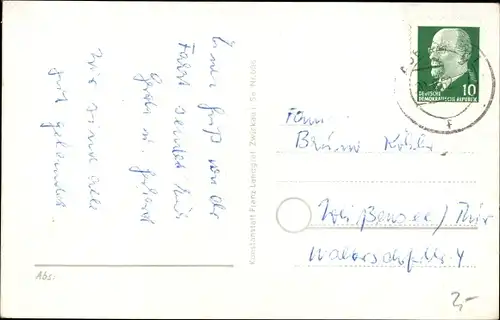 Einen Gruß von der
Fahrt sendet Euch
Gerda u. Gerhard
Wir sind alle
gut gelandet.
Abs:
Kunstanstalt Franz Landgraf, Zwickau i. Sa.
10
DEUTSCHE
DEMOKRATISCHE REPUBLIK
Fam.
Bruno Köhler
Weißensee / Thür
4
2,-